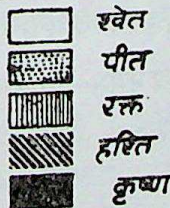 श्वेत
पीत
रक्त
हरित
कृष्ण